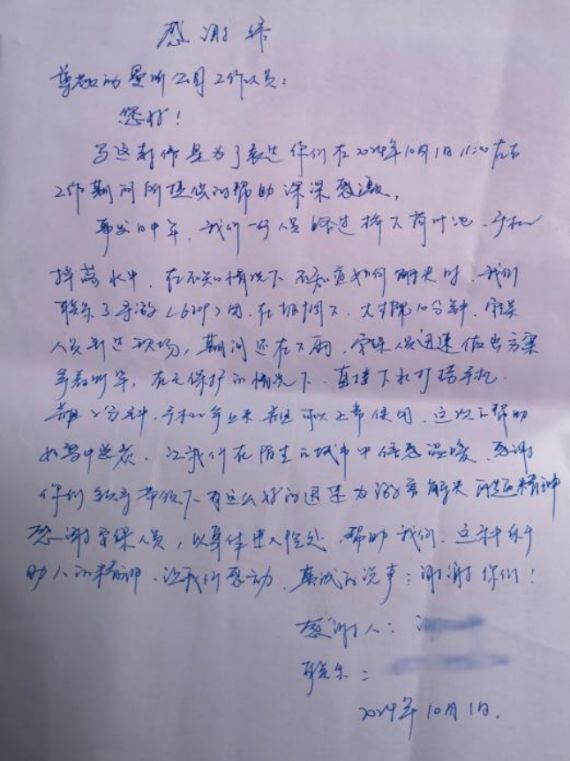 感谢信
尊敬的景区公司工作人员：
您好！
写这封信是为了表达你们在2024年10月1日11:20左右
工作期间所提供的帮助深深感激。
事发日中午，我们一行人经过桥下荷叶池，手机
掉落水中，在不知情况下不知道如何解决时，我们
联系了导游<629>团，在协调下，大约10分钟，安保
人员到达现场，期间还在下雨，安保人员迅速做出方案
，在无保护的情况下，直接下水打捞手机，
2分钟，手机可以正常使用，这次的帮助
如雪中送炭，让我们在陌生的城市中倍感温暖，感谢
你们领导带领下有这么好的团队为游客解决问题的精神
感谢安保人员，以身体进入险处，帮助我们，这种乐于
助人的精神，让我们感动，真诚的说声：谢谢你们！
感谢人：
联系：
2024年10月1日.